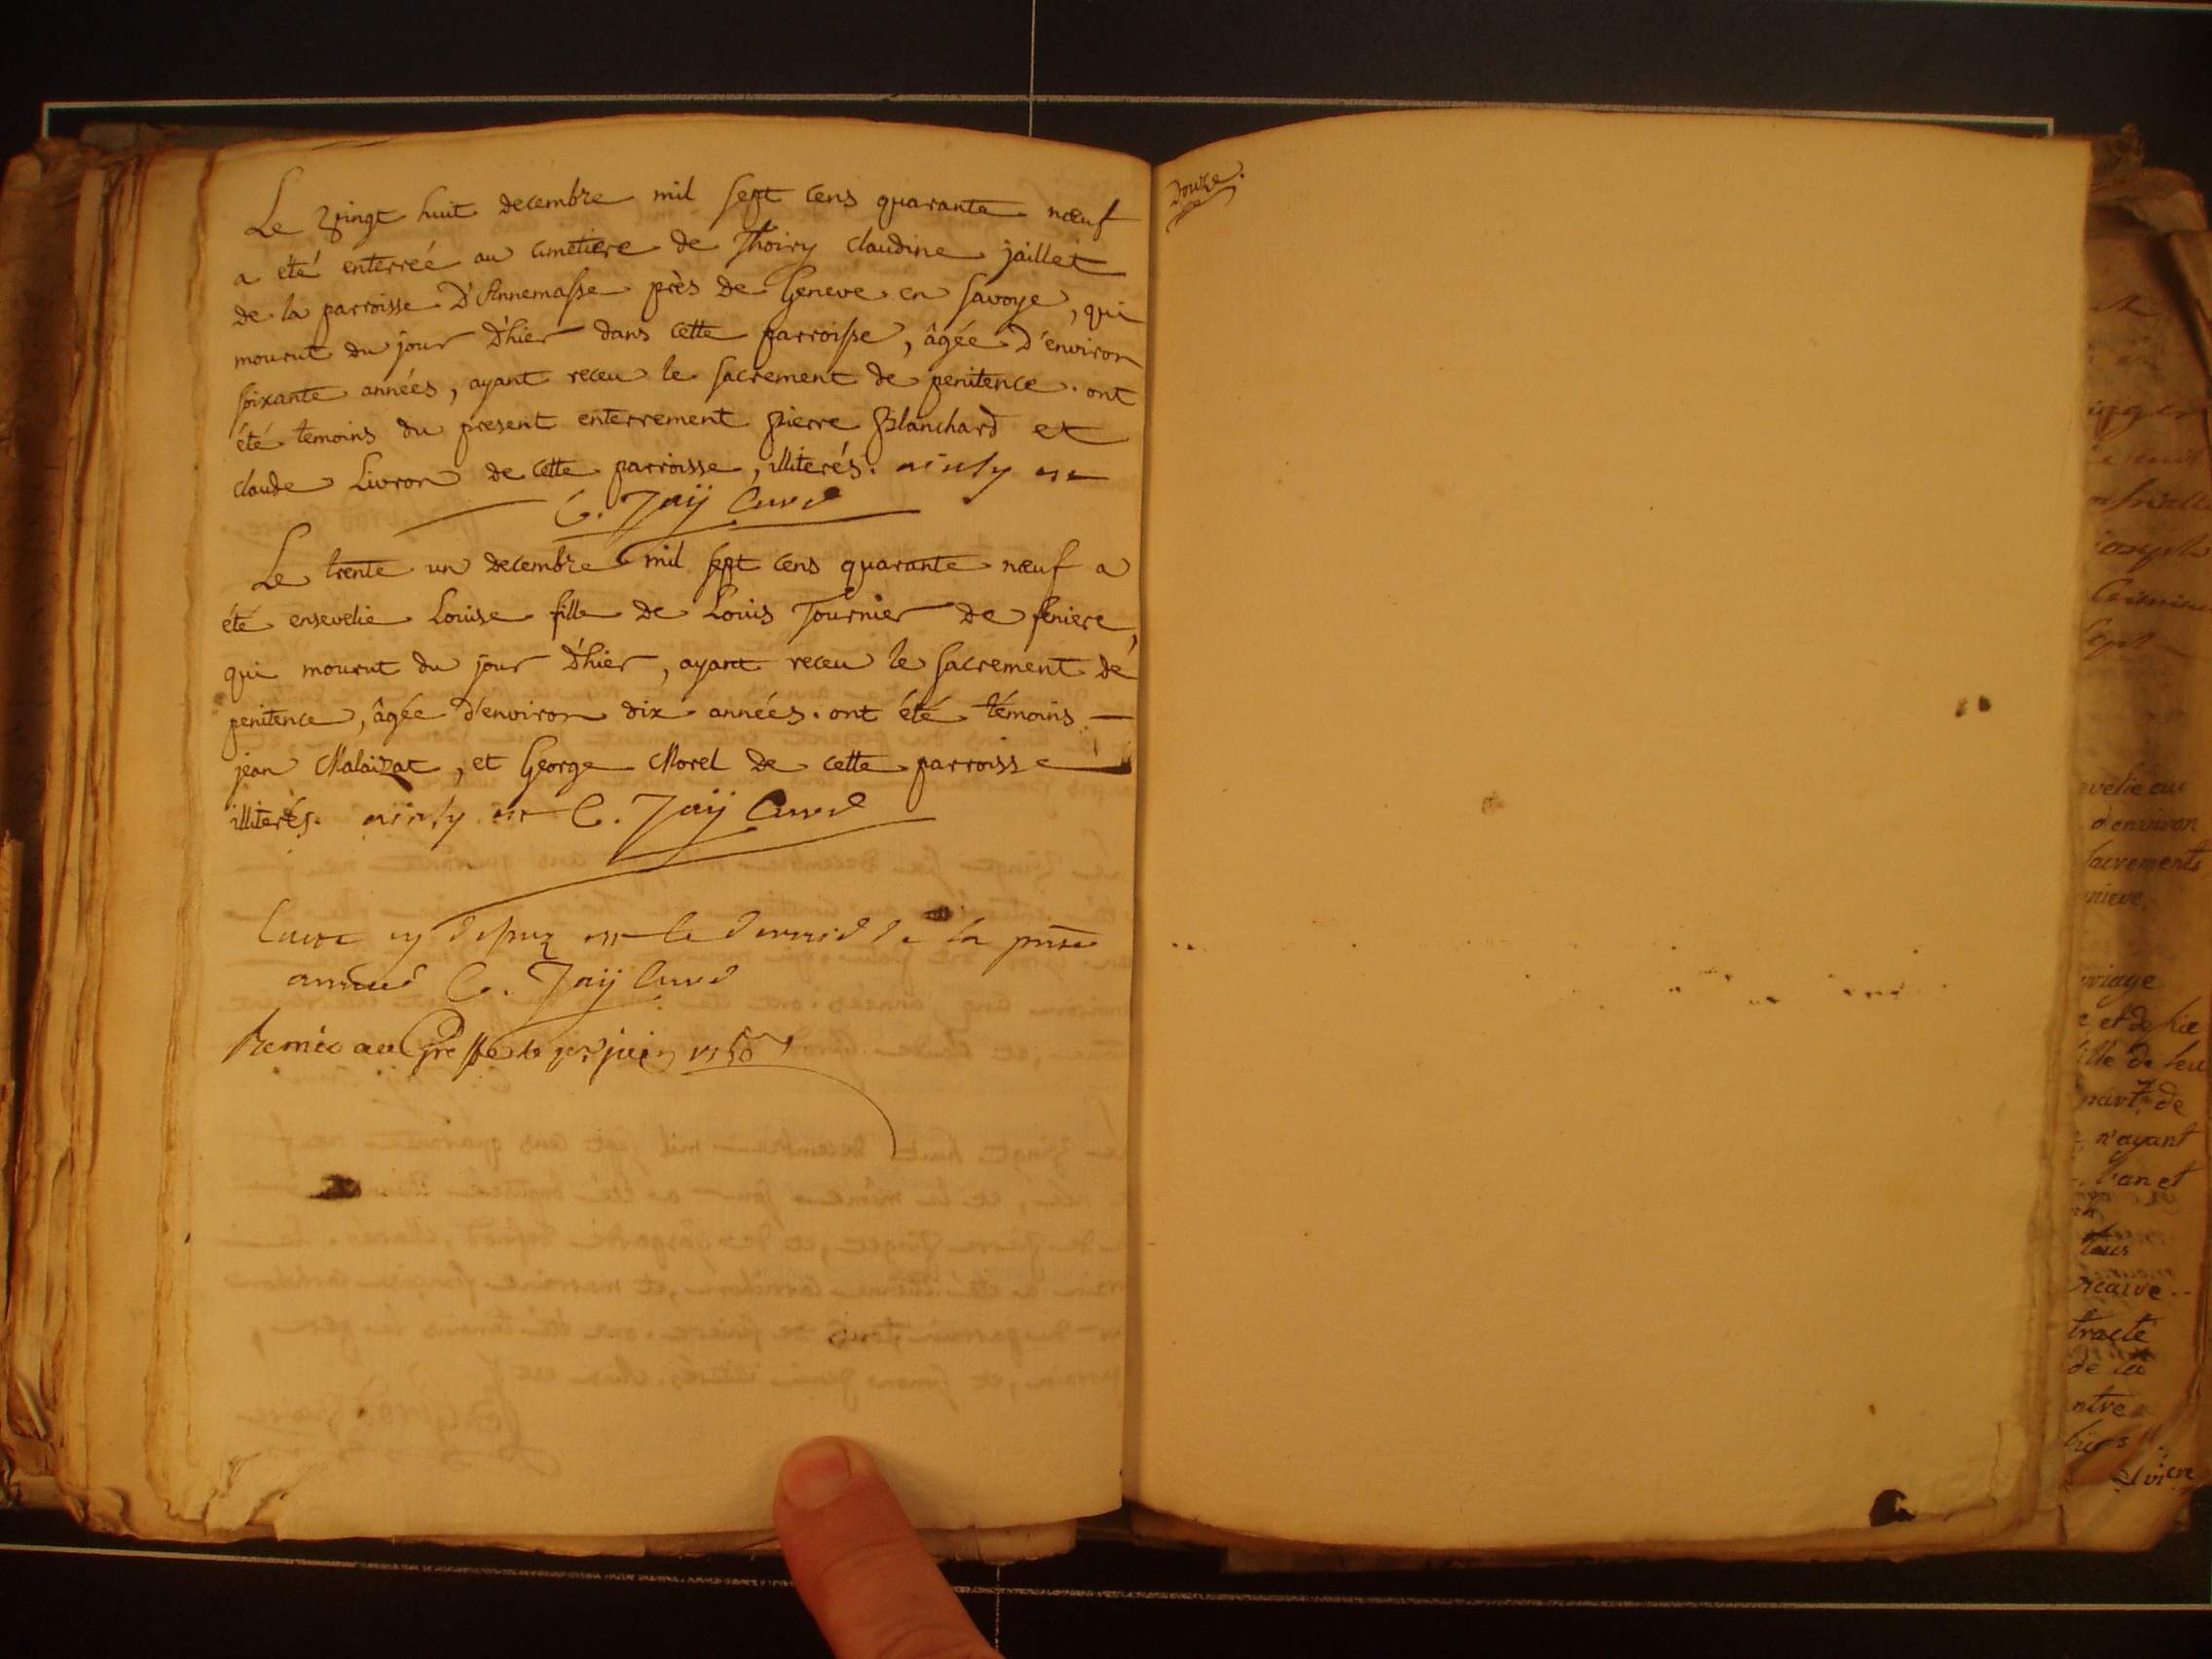 Le vingt huit decembre mil sept cens quarante nœuf
a été enterreé au cimetiere de Thoiry claudine jaillet
de la parroisse D'Annemasse près de Geneve en savoye, qui
mourut du jour D'hier dans cette parroisse, âgée D'environ
soixante années, ayant receu le sacrement de penitence. ont
été temoins du present enterrement pierre Blanchard et
claude Livron de cette parroisse, illiterés. ainsy est
C. Jaÿ Curé
Le trente un decembre mil sept cens quarante nœuf a
été ensevelie Louise fille de Louis Tournier de feniere,
qui mourut du jour D'hier, ayant receu le sacrement de
penitence, âgée d'environ dix années. ont été témoins
jean Malaizat, et George Morel de cette parroisse
illiterés. ainsy est C. Jaÿ Curé
est le dernier de la
année C. Jaÿ Curé
Remis au Greffe le juin 1750
Douze.
evelie au
d'environ
sacrements
niere
riage
n'ayant
tracté
de la